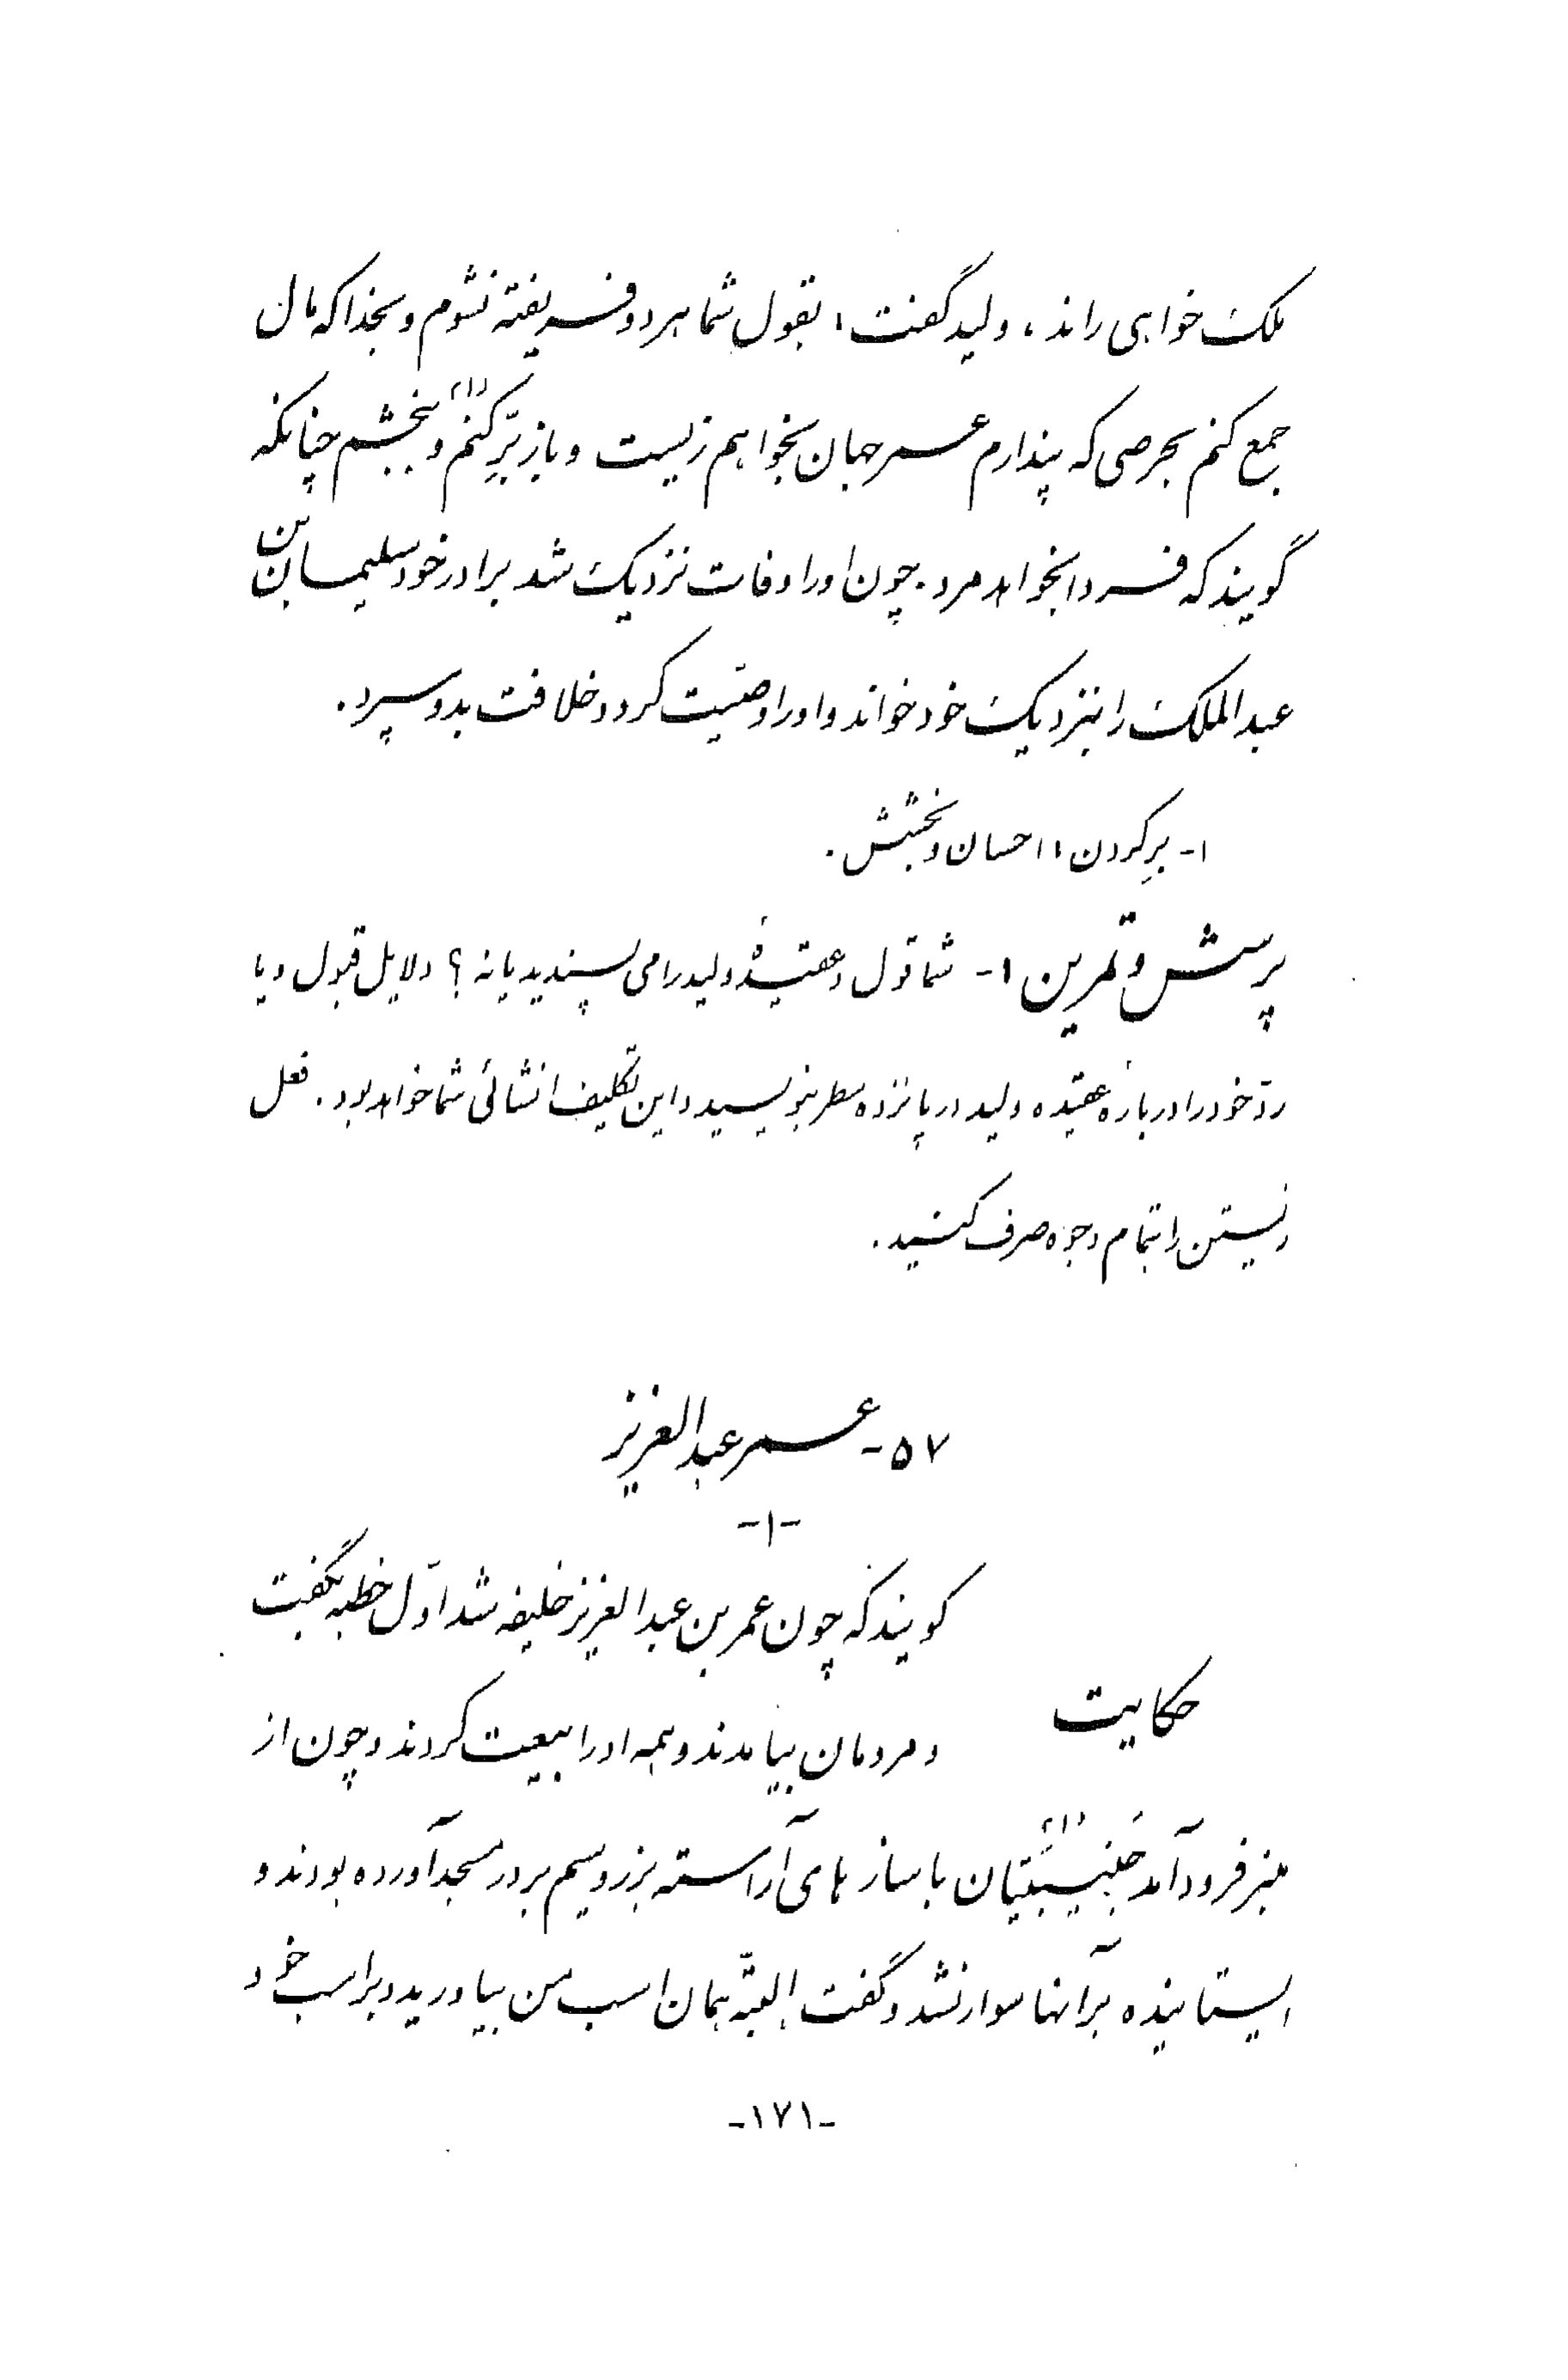 ملک خواهی راند، ولید گفت: بقول شما هر دو فریفته نشوم و بخدا که مال
جمع کنم بحرصی که پندارم عمر جهان بخواهم زیست و باز بِرّ کنم (۱) و ببخشم چنانکه
گویند که فردا بخواهد مرد. چون او را وفات نزدیک شد برادر خود سلیمان بن
عبدالملک را بنزدیک خود خواند و او را وصیّت کرد و خلافت بدو سپرد.
۱- بِر کردن: احسان و بخشش.
پرسش و تمرین ۱- شما قول و عقیدهٔ ولید را می پسندید یا نه؟ دلایل قبول و یا
ردّ خود را در بارهٔ عقیده ولید در پانزده سطر بنویسید و این تکلیف انشائی شما خواهد بود. فعل
زیستن را بتمام وجوه صرف کنید.
۵۷- عمر عبدالعزیز
-۱-
گویند که چون عمر بن عبدالعزیز خلیفه شد اوّل خطبه بگفت
حکایت
و مردمان بیامدند و همه او را بیعت کردند و چون از
منبر فرود آمد جَنیبَتیان (۱) با سازهای آراسته بزر و سیم بر در مسجد آورده بودند و
ایستانیده بر آنها سوار نشد و گفت البتّه همان اسب من بیاورید و بر اسب خود
-۱۷۱-